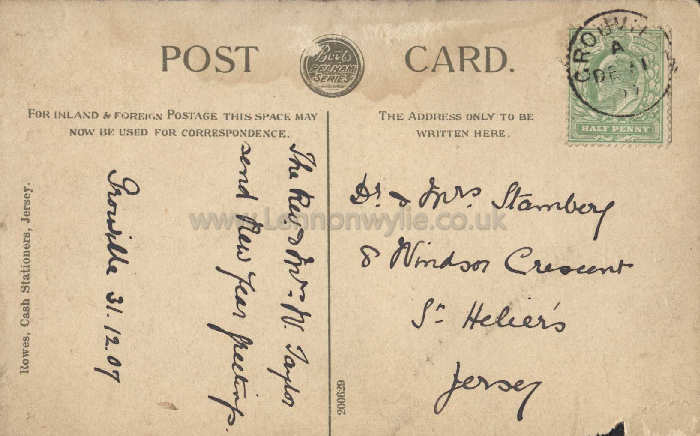 POST CARD.
Boots
PELHAM
SERIES
GROUVILLE
A
DE 31
07
HALF PENNY
FOR INLAND & FOREIGN POSTAGE THIS SPACE MAY
NOW BE USED FOR CORRESPONDENCE.
THE ADDRESS ONLY TO BE
WRITTEN HERE.
The Rev & Mrs W. Taylor
send New Year greetings.
Grouville 31.12.07
Dr. & Mrs Stambery
8 Windsor Crescent
St Helier's
Jersey
Rowes, Cash Stationers, Jersey.
200629
www.Lennonwylie.co.uk